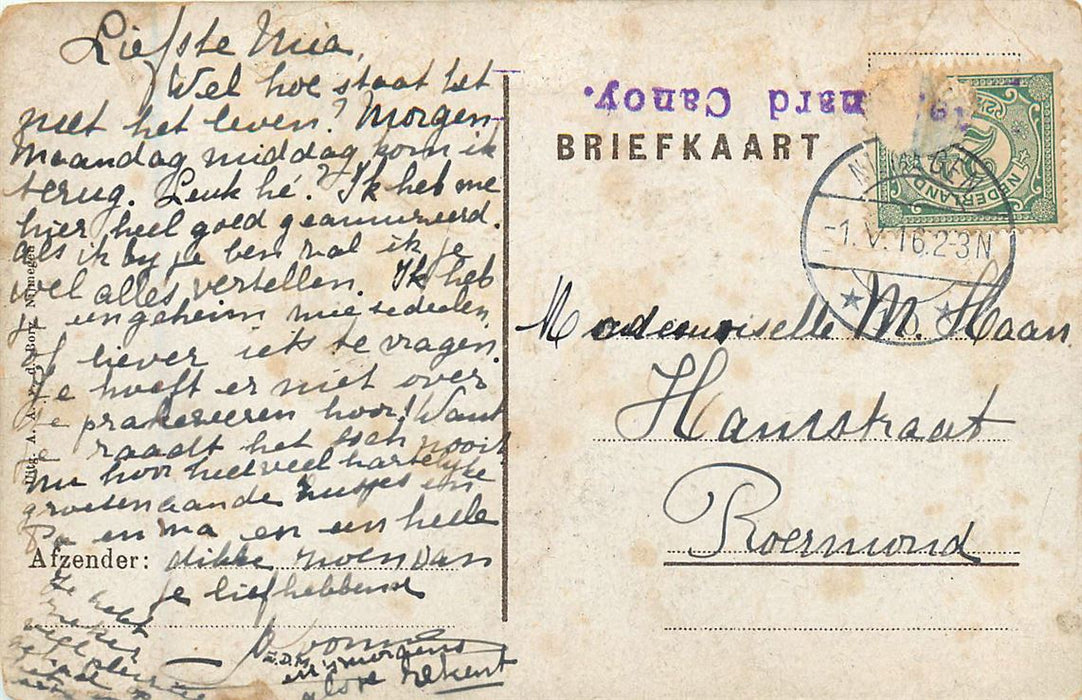 Liefste Mia,
Wel hoe staat het
met het leven? Morgen
Maandag middag kom ik
terug. Leuk hé? Ik heb me
hier heel goed geamuseerd.
Als ik by je ben zal ik je
wel alles vertellen. Ik heb
je een geheim mie te deelen,
of liever iets te vragen.
Je hoeft er niet over
te prakezeeren hoor! Want
je raadt het toch nooit
nu hoor heel veel hartelyke
groeten aan de zusjes en je
Pa en ma en een heele
dikke zoen van
je liefhebbende
Je hebt
zeker
veel
Afzender:
Uitg. A. A. v. d. Borg, Nijmegen
nard Canoy.
BRIEFKAART
NEDERLAND
-1.V.16.2-3N
Mademoiselle M. Haan
Hamstraat
Roermond